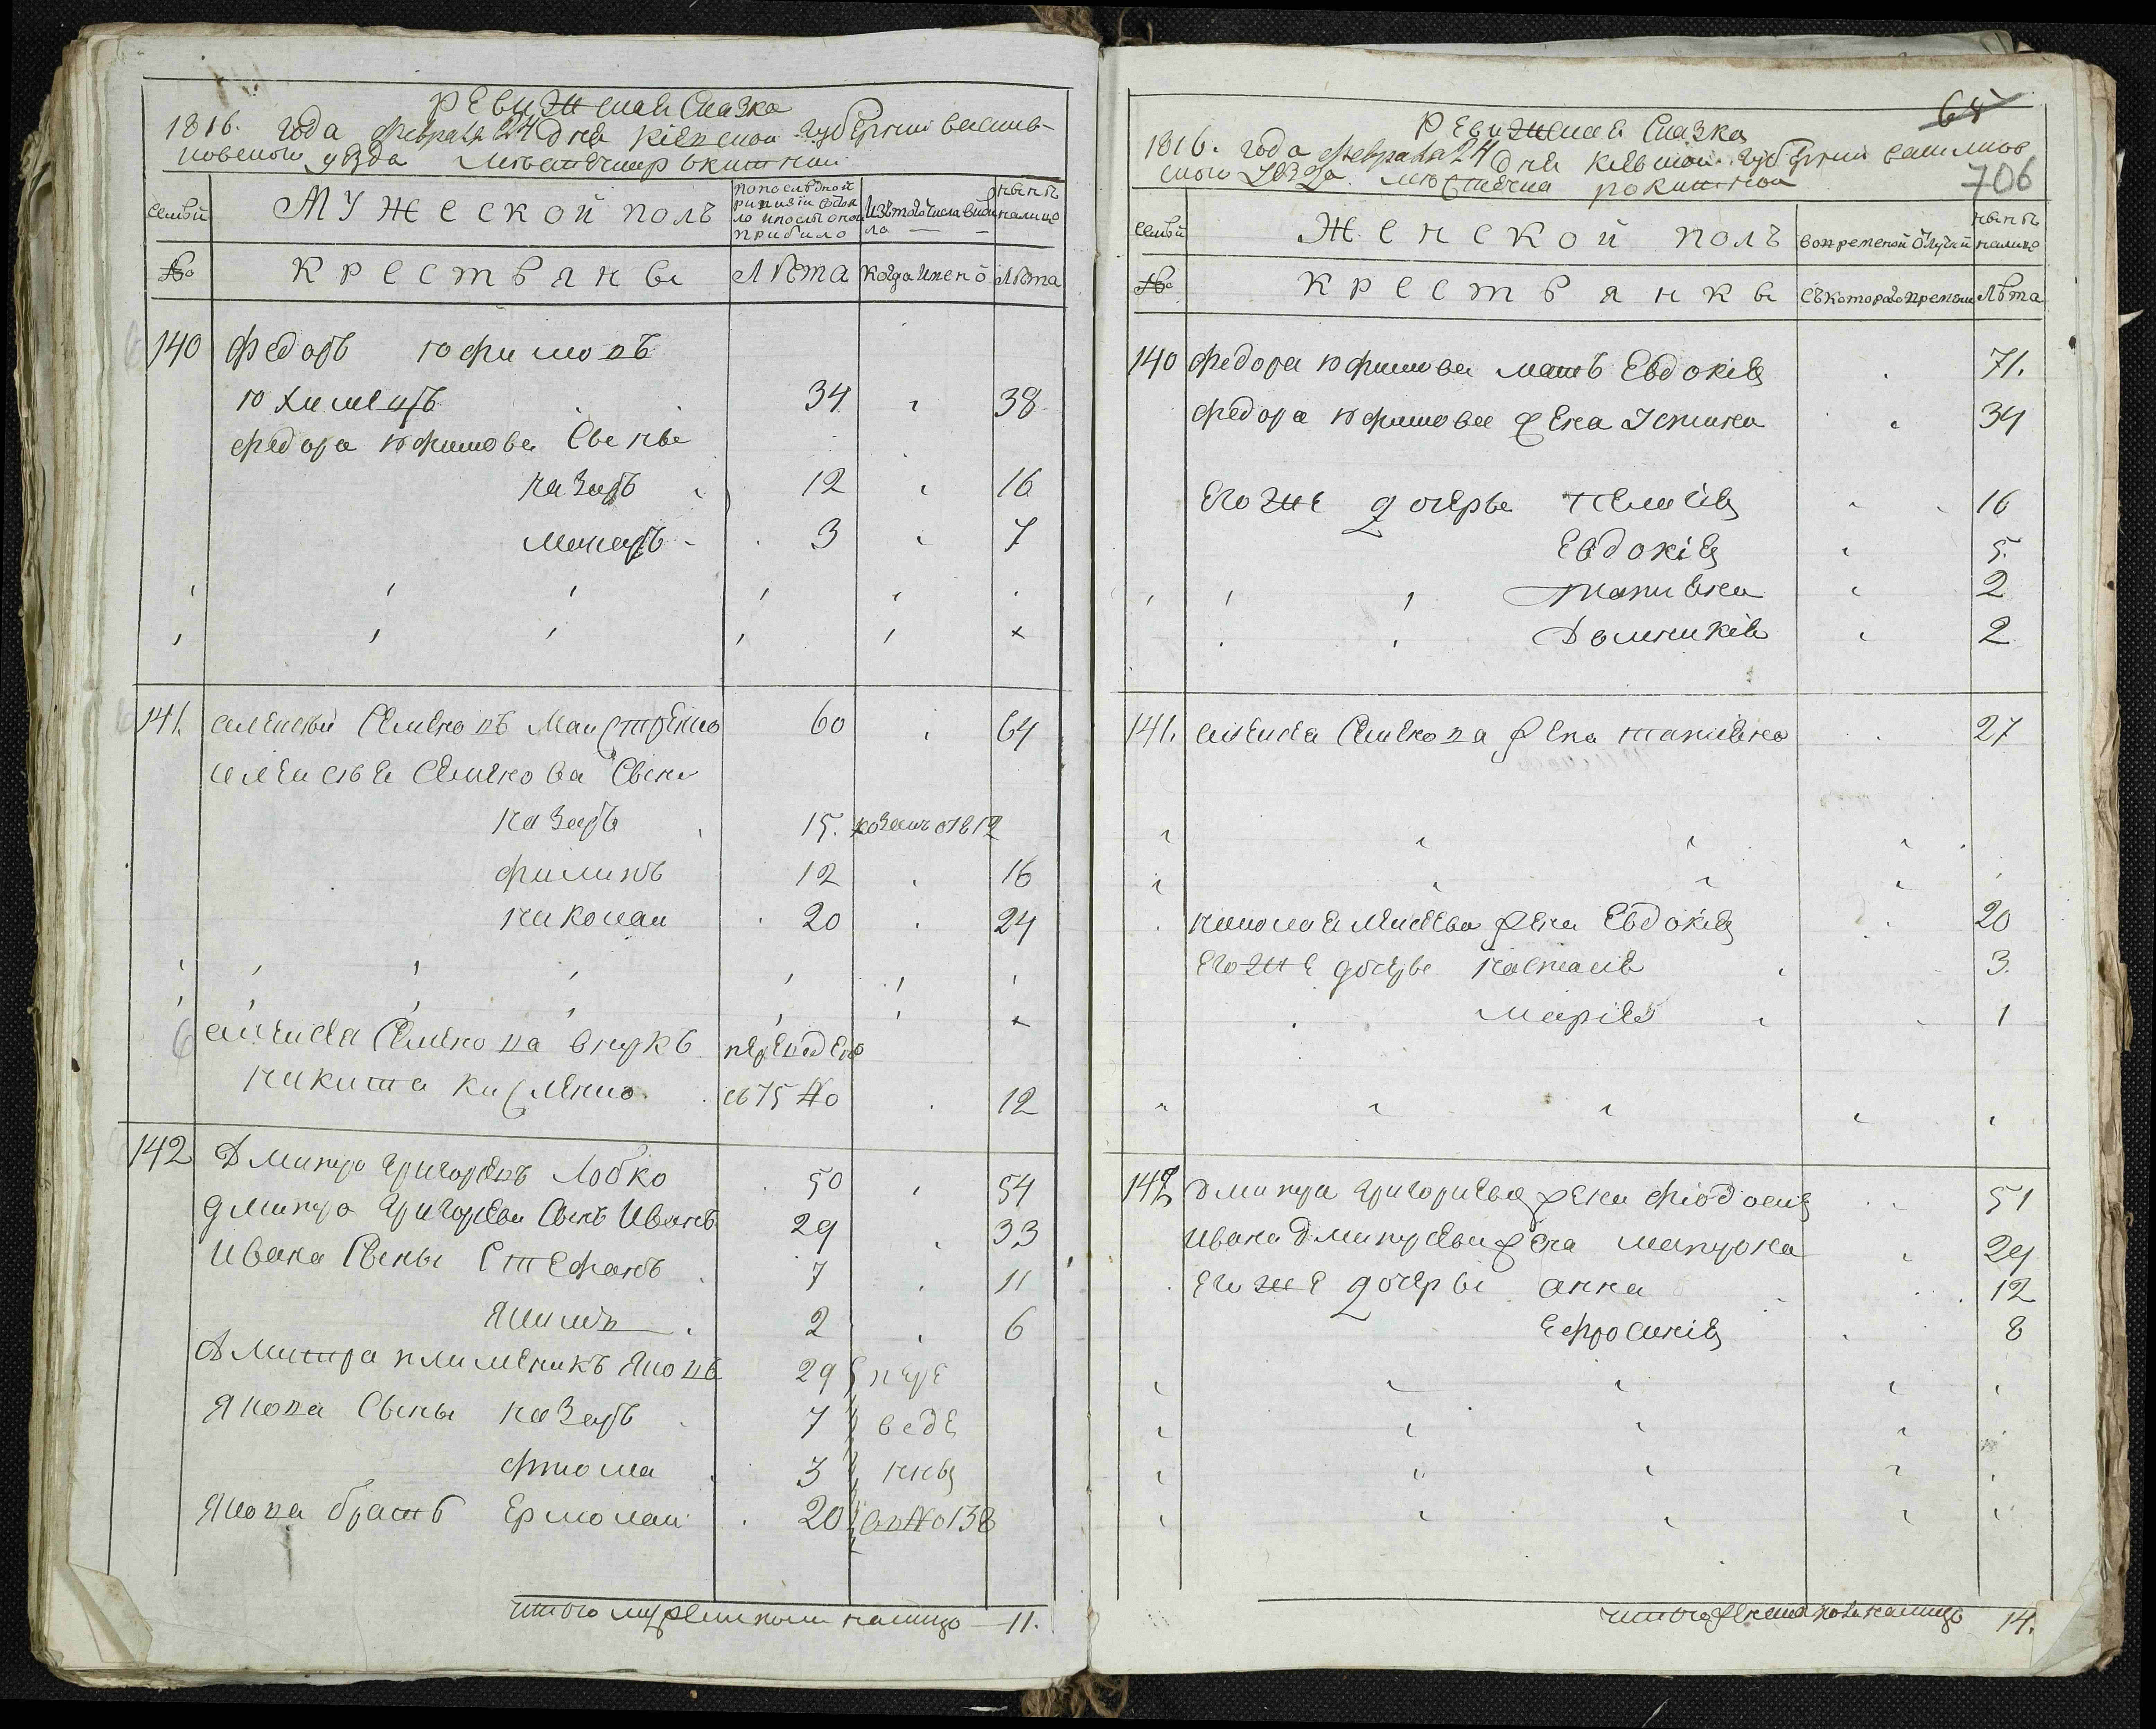 Ревижская Сказка
1816. года февраля 24 дня Кіевской губерніи василь-
ковского уѣзда мѣстечка рокитной
семьи
Мужеской полъ
по последной ревизіи состояло и после оной прибыло
изъ того числа выбило
нынѣ налицо
№
крестьяне
Лѣта
когда имено
Лѣта
140 Федоръ юфимовъ
юхименъ 34 38
Федора юфимова сыны
назаръ 12 16
макаръ 3 7
141. алексѣй семеновъ маистренко 60 64
алексѣя семенова сыны
назаръ 15. козакъ съ 1812
филипъ 12 16
николаи 20 24
алексея семенова внукъ переведено
никита кисленко съ 75 № 12
142 Дмитро григоревъ лобко 50 54
дмитра григорева сынъ иванъ 29 33
ивана сыны стефанъ 7 11
якимъ 2 6
дмитра племеникъ яковъ 29 пере
якова сыны назаръ 7 веде
фтома 3 нны
якова братъ ермолаи 20 въ № 138
итого мужеска пола налицо 11.
68
706
Ревижская Сказка
1816. года февраля 24 дня кіевской губерніи василков
ского уѣзда мѣстечка рокитной
семьи
Женской полъ
во временной отлучки
нынѣ налицо
№
крестьянки
съ которого времени
лѣта
140 федора юфимова мать Евдокія 71.
федора юфимова жена Устина 34
Его же дочеры пелагія 16
Евдокія 5.
татияна 2
Домникія 2
141. алексѣя семенова жена татияна 27
николая алексеева жена Евдокія 20
Его же дочеры настасія 3.
марія 1
142 дмитра григориева жена фіодосия 51
ивана дмитрева жена матрона 29
Его же дочеры анна 12
Ефросинія 8
итого женска пола налицо 14.